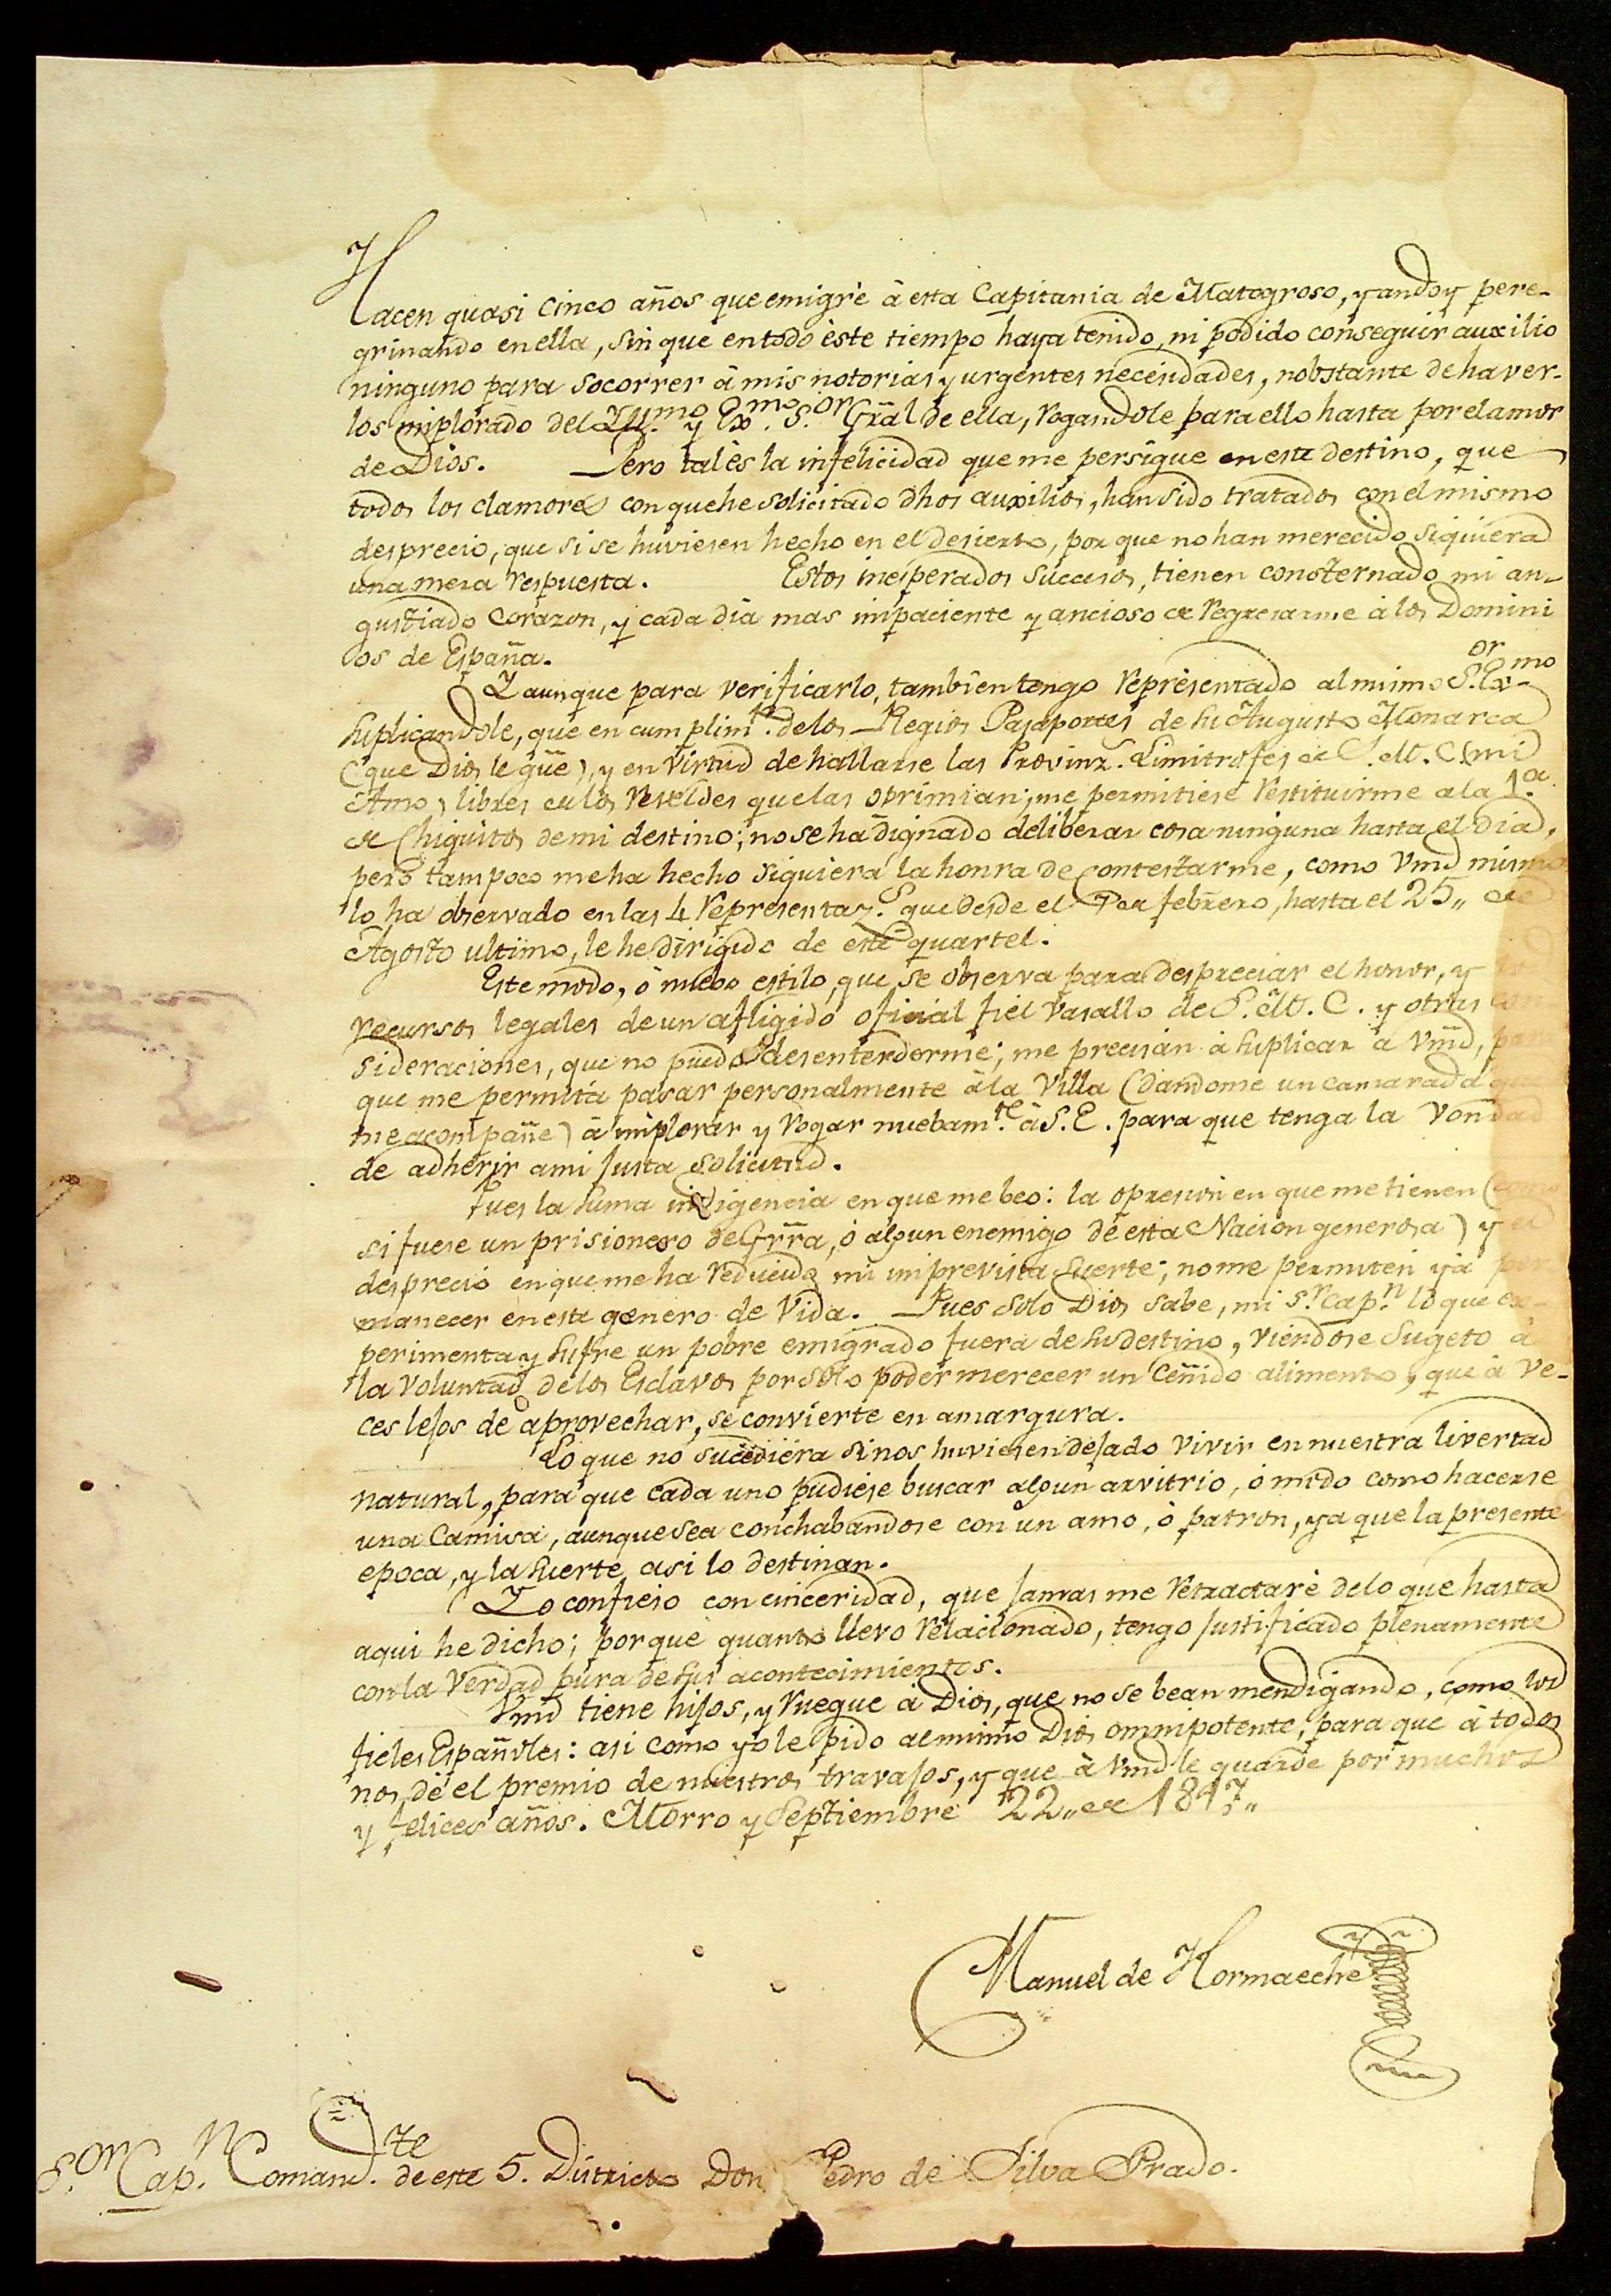 Hacen quasi cinco años que emigrè à esta Capitania de Matogroso, y andoy pere-
grinando en ella, sin que en todo èste tiempo haya tenido, ni podido conseguir auxilio
ninguno para socorrer à mis notorias y urgentes necesidades, nobstante de haver-
los implorado del Yll.mo y Ex.mo S.or Gral de ella, rogandole para ello hasta por el amor
de Dios. Pero tal ès la infelicidad que me persigue en este destino, que
todos los clamores con que he solicitado dhos auxilios, han sido tratados con el mismo
desprecio, que si se huviesen hecho en el desierto, por que no han merecido siquiera
una mera respuesta. Estos inesperados sucesos, tienen consternado mi an-
gustiado corazon, y cada dia mas impaciente y ancioso de regresarme à los Domini
os de España.
Y aunque para verificarlo, tambien tengo representado al mismo S.or Ex.mo
suplicandole, que en cumplim.to de los Regios Pasaportes de su Augusto Monarca
(que Dios le gũe), y en virtud de hallarse las Provinz.s Limitrofes de S. M. C. (mi
Amo) libres de los reveldes que las oprimian; me permitiese restituirme a la 1.a
de Chiquitos de mi destino; no se ha dignado deliberar cosa ninguna hasta el dia,
pero tampoco me ha hecho siquiera la honra de contestarme, como Vmd mismo
lo ha observado en las 4 representaz.s que desde el 7 de febrero, hasta el 25,, de
Agosto ultimo, le he dirigido de este quartel.
Este modo, ò nuebo estilo, que se observa para despreciar el honor, y
recursos legales de un afligido oficial fiel vasallo de S. M. C. y otras con
sideraciones, que no puedo desentenderme; me precisan à suplicar à Vmd, para
que me permita pasar personalmente à la Villa (dandome un camarada que
me acompañe) à implorar y rogar nuebam.te à S. E. para que tenga la vondad
de adherir a mi justa solicitud.
Pues la suma indigencia en que me beo: la opresion en que me tienen (como
si fuese un prisionero de Grra, ò algun enemigo de esta Nacion generosa) y el
desprecio en que me ha reducido mi imprevista suerte; no me permiten yà per
manecer en este genero de vida. Pues solo Dios sabe, mi S.r Cap.n lo que ex-
perimenta y sufre un pobre emigrado fuera de su destino, viendose sugeto à
la voluntad de los Esclavos por solo poder merecer un ceñido alimento, que à ve-
ces lejos de aprovechar, se convierte en amargura.
Lo que no sucediera si nos huviesen dejado vivir en nuestra livertad
natural, para que cada uno pudiese buscar algun arvitrio, ò modo como hacerse
una camisa, aunque sea conchabandose con un amo, ò patron, ya que la presente
epoca, y la suerte asi lo destinan.
Yo confieso con cinceridad, que jamas me retractarè de lo que hasta
aqui he dicho; porque quanto llevo relacionado, tengo justificado plenamente
con la verdad pura de sus acontecimientos.
Vmd tiene hijos, y ruegue à Dios, que no se bean mendigando, como los
fieles Españoles: asi como yo le pido al mismo Dios omnipotente, para que à todos
nos dè el premio de nuestros travajos, y que à Vmd le guarde por muchos
y felices años. Morro y Septiembre 22,, de 1817,,
Manuel de Hormaeche
S.or Cap.n Comand.te de este 5. Districto Don Pedro de Silva Prado.